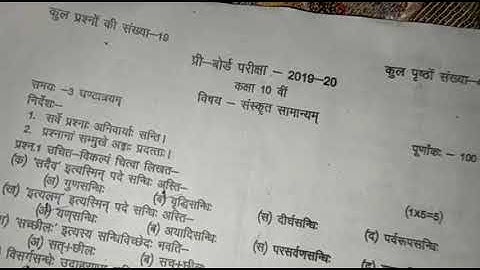 कुल प्रश्नों की संख्या–19
प्री–बोर्ड परीक्षा – 2019–20
कुल पृष्ठों संख्या–
कक्षा 10 वीं
समकः –3 घण्टात्रयम्
विषय – संस्कृत सामान्यम्
निर्देशः–
पूर्णांकः – 100
1. सर्वे प्रश्नाः अनिवार्याः सन्ति।
2. प्रश्नानां सम्मुखे अङ्काः प्रदत्ताः।
प्रश्न.1 उचित–विकल्पं चित्वा लिखत–
(1x5=5)
(क) 'सदैव' इत्यस्मिन् पदे सन्धिः अस्ति–
(अ) गुणसन्धिः (ब) वृद्धिसन्धिः (स) दीर्घसन्धिः (द) पर्वरूपसन्धिः
(ख) 'इत्यलम्' इत्यस्मिन् पदे सन्धिः अस्ति–
(अ) यण्सन्धिः (ब) अयादिसन्धिः (स) परसवर्णसन्धिः (द)
'सच्छीलः' इत्यस्य सन्धिविच्छेदः भवति–
(अ) सत्+छीलः (ब) सच्+छीलः
विसर्गसन्धेः उदाहरणम्